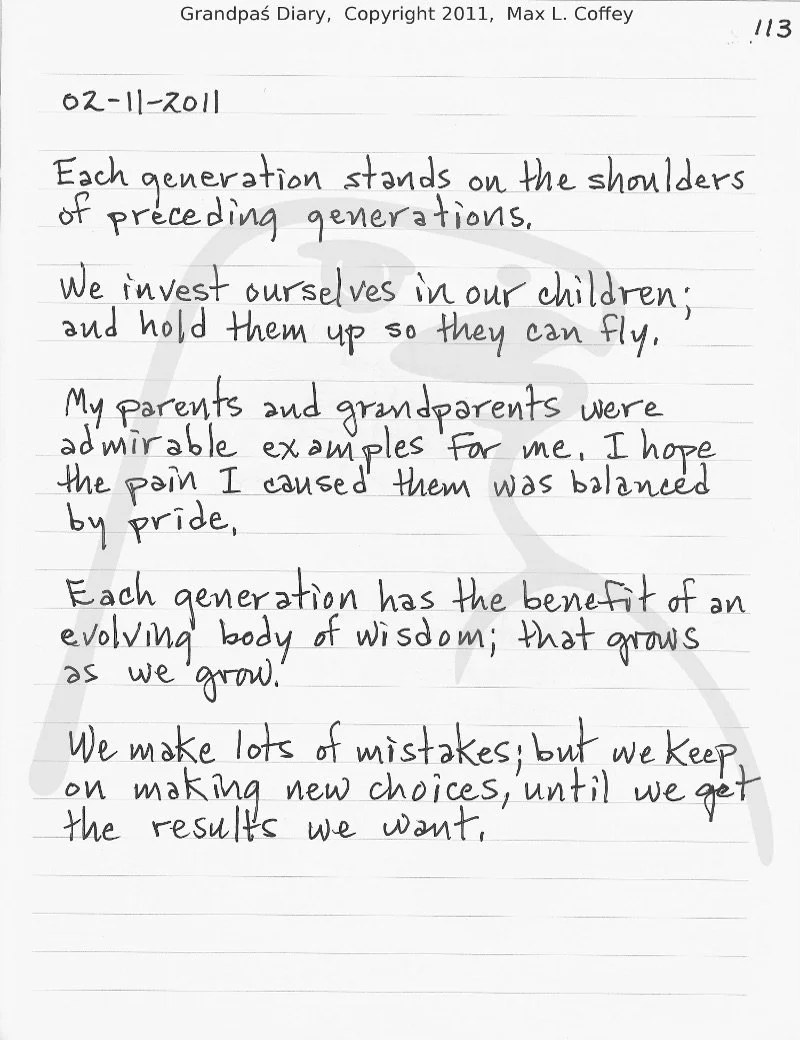 Grandpaś Diary, Copyright 2011, Max L. Coffey
113
02-11-2011
Each generation stands on the shoulders
of preceding generations.
We invest ourselves in our children;
and hold them up so they can fly.
My parents and grandparents were
admirable examples for me. I hope
the pain I caused them was balanced
by pride.
Each generation has the benefit of an
evolving body of wisdom; that grows
as we grow.
We make lots of mistakes; but we keep
on making new choices, until we get
the results we want.